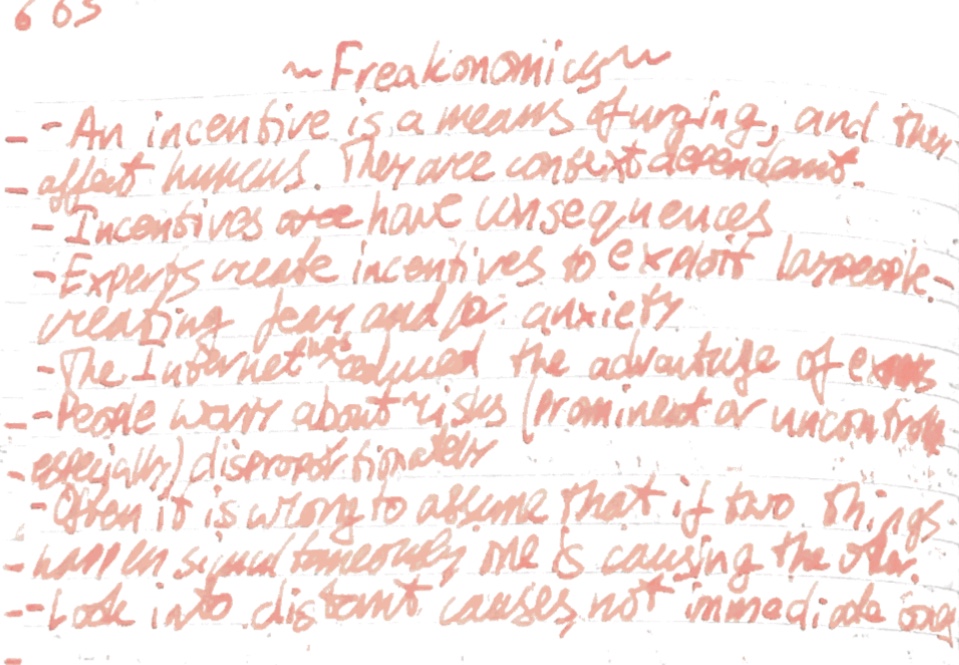 ~Freakonomics~
- An incentive is a means of urging, and they
affect humans. They are context dependant.
- Incentives are have consequences
- Experts create incentives to exploit laypeople -
creating fear and/or anxiety
- The Internet has reduced the advantage of
- People worry about risks (prominent or
especially) disproportionately
- Often it is wrong to assume that if two things
happen simultaneously one is causing the other.
- Look into distant causes, not immediate ones